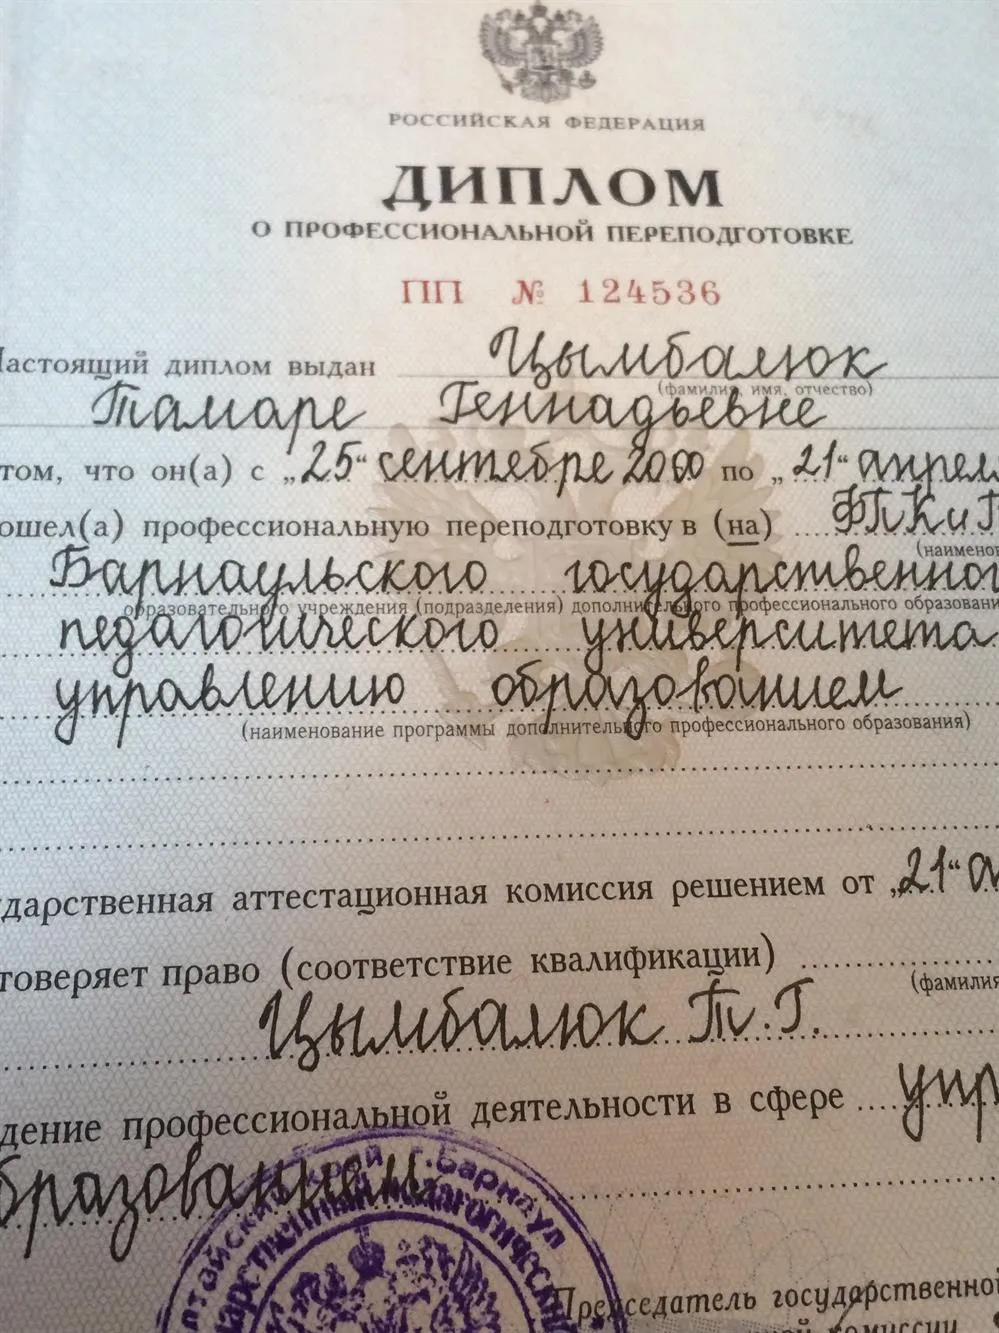 РОССИЙСКАЯ ФЕДЕРАЦИЯ
ДИПЛОМ
О ПРОФЕССИОНАЛЬНОЙ ПЕРЕПОДГОТОВКЕ
ПП № 124536
Настоящий диплом выдан Цымбалюк
(фамилия, имя, отчество)
Тамаре Геннадьевне
том, что он(а) с „25“ сентебре 2000 по „21“ апрел
ошел(а) профессиональную переподготовку в (на) ФПКиП
(наимено
Барнаульского государственног
образовательного учреждения (подразделения) дополнительного профессионального образовани
педагогического университета
управлению образованием
(наименование программы дополнительного профессионального образования)
дарственная аттестационная комиссия решением от „21“ а
товеряет право (соответствие квалификации)
(фамилия
Цымбалюк Т.Г.
дение профессиональной деятельности в сфере упр
бразованием
тайский край г. Барнаул
дарственный педагогический
Председатель государственной
ной комиссии